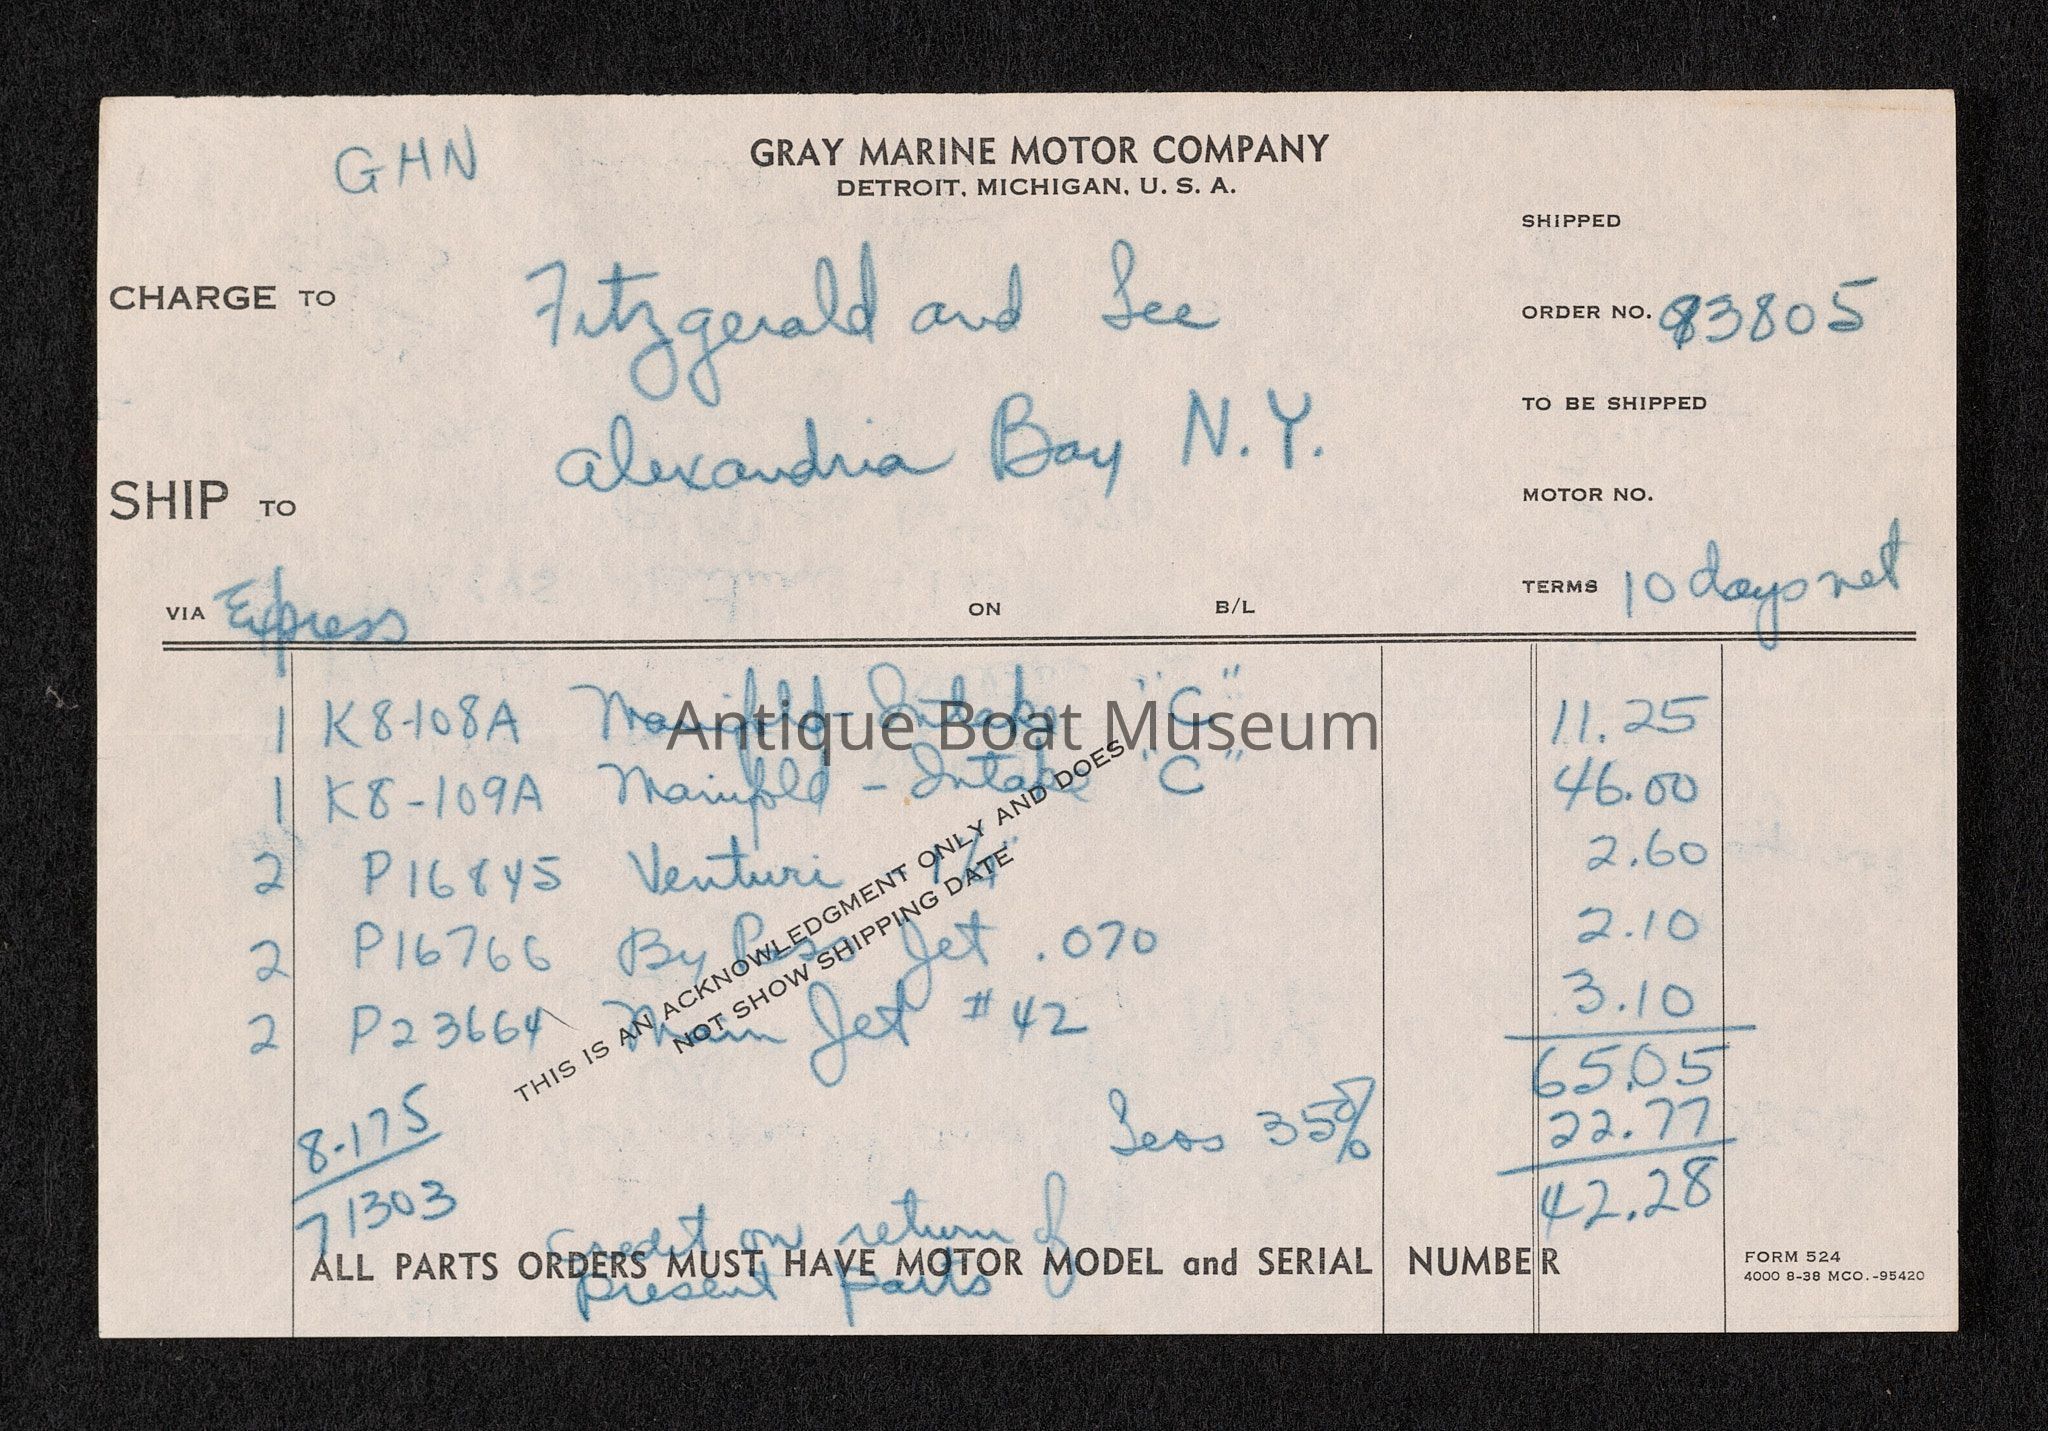 GHN
GRAY MARINE MOTOR COMPANY
DETROIT, MICHIGAN, U. S. A.
SHIPPED
CHARGE TO Fitzgerald and Lee
ORDER NO. 83805
TO BE SHIPPED
Alexandria Bay N.Y.
SHIP TO
MOTOR NO.
VIA Express ON B/L
TERMS 10 days net
1 K8-108A Manifold - Intake "C" 11.25
Antique Boat Museum
1 K8-109A Manifold - Intake "C" 46.00
2 P16845 Venturi 2.60
2 P16766 By Pass Jet .070 2.10
2 P23664 Main Jet #42 3.10
THIS IS AN ACKNOWLEDGMENT ONLY AND DOES
NOT SHOW SHIPPING DATE
65.05
8-175 Less 35% 22.77
71303 42.28
Credit on return of
present parts
ALL PARTS ORDERS MUST HAVE MOTOR MODEL and SERIAL NUMBER
FORM 524
4000 8-38 MCO.-95420